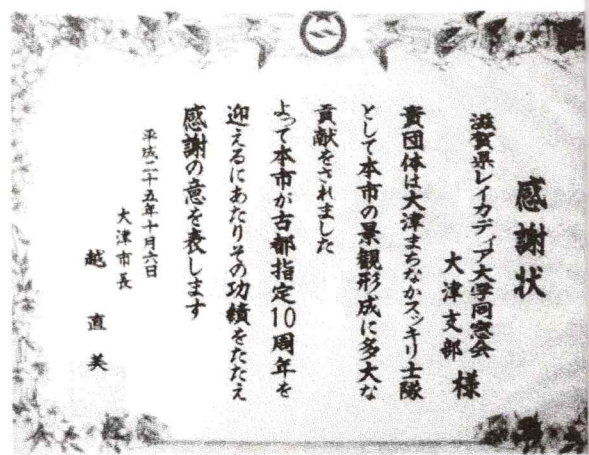 感謝状
滋賀県レイカディア大学同窓会
大津支部 様
貴団体は大津まちなかスッキリ士隊
として本市の景観形成に多大な
貢献をされました
よって本市が古都指定10周年を
迎えるにあたりその功績をたたえ
感謝の意を表します
平成二十五年十月六日
大津市長
越直美